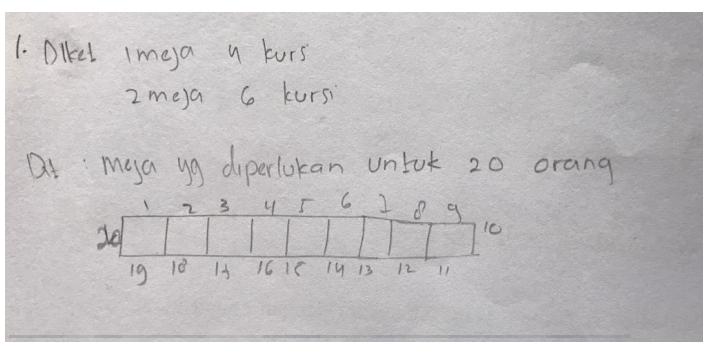 1. Diket 1 meja 4 kursi
2 meja 6 kursi
Dt : meja yg diperlukan untuk 20 orang
1 2 3 4 5 6 7 8 9
20 10
19 18 17 16 15 14 13 12 11